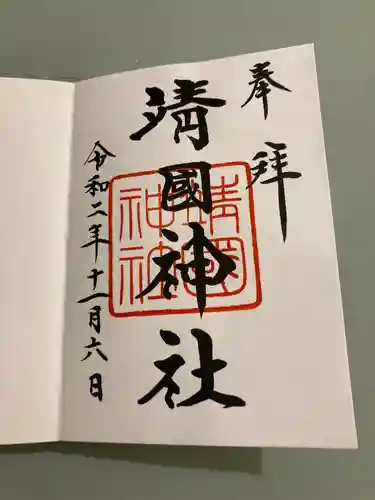 奉拝
靖國神社
靖國神社
令和二年十一月六日